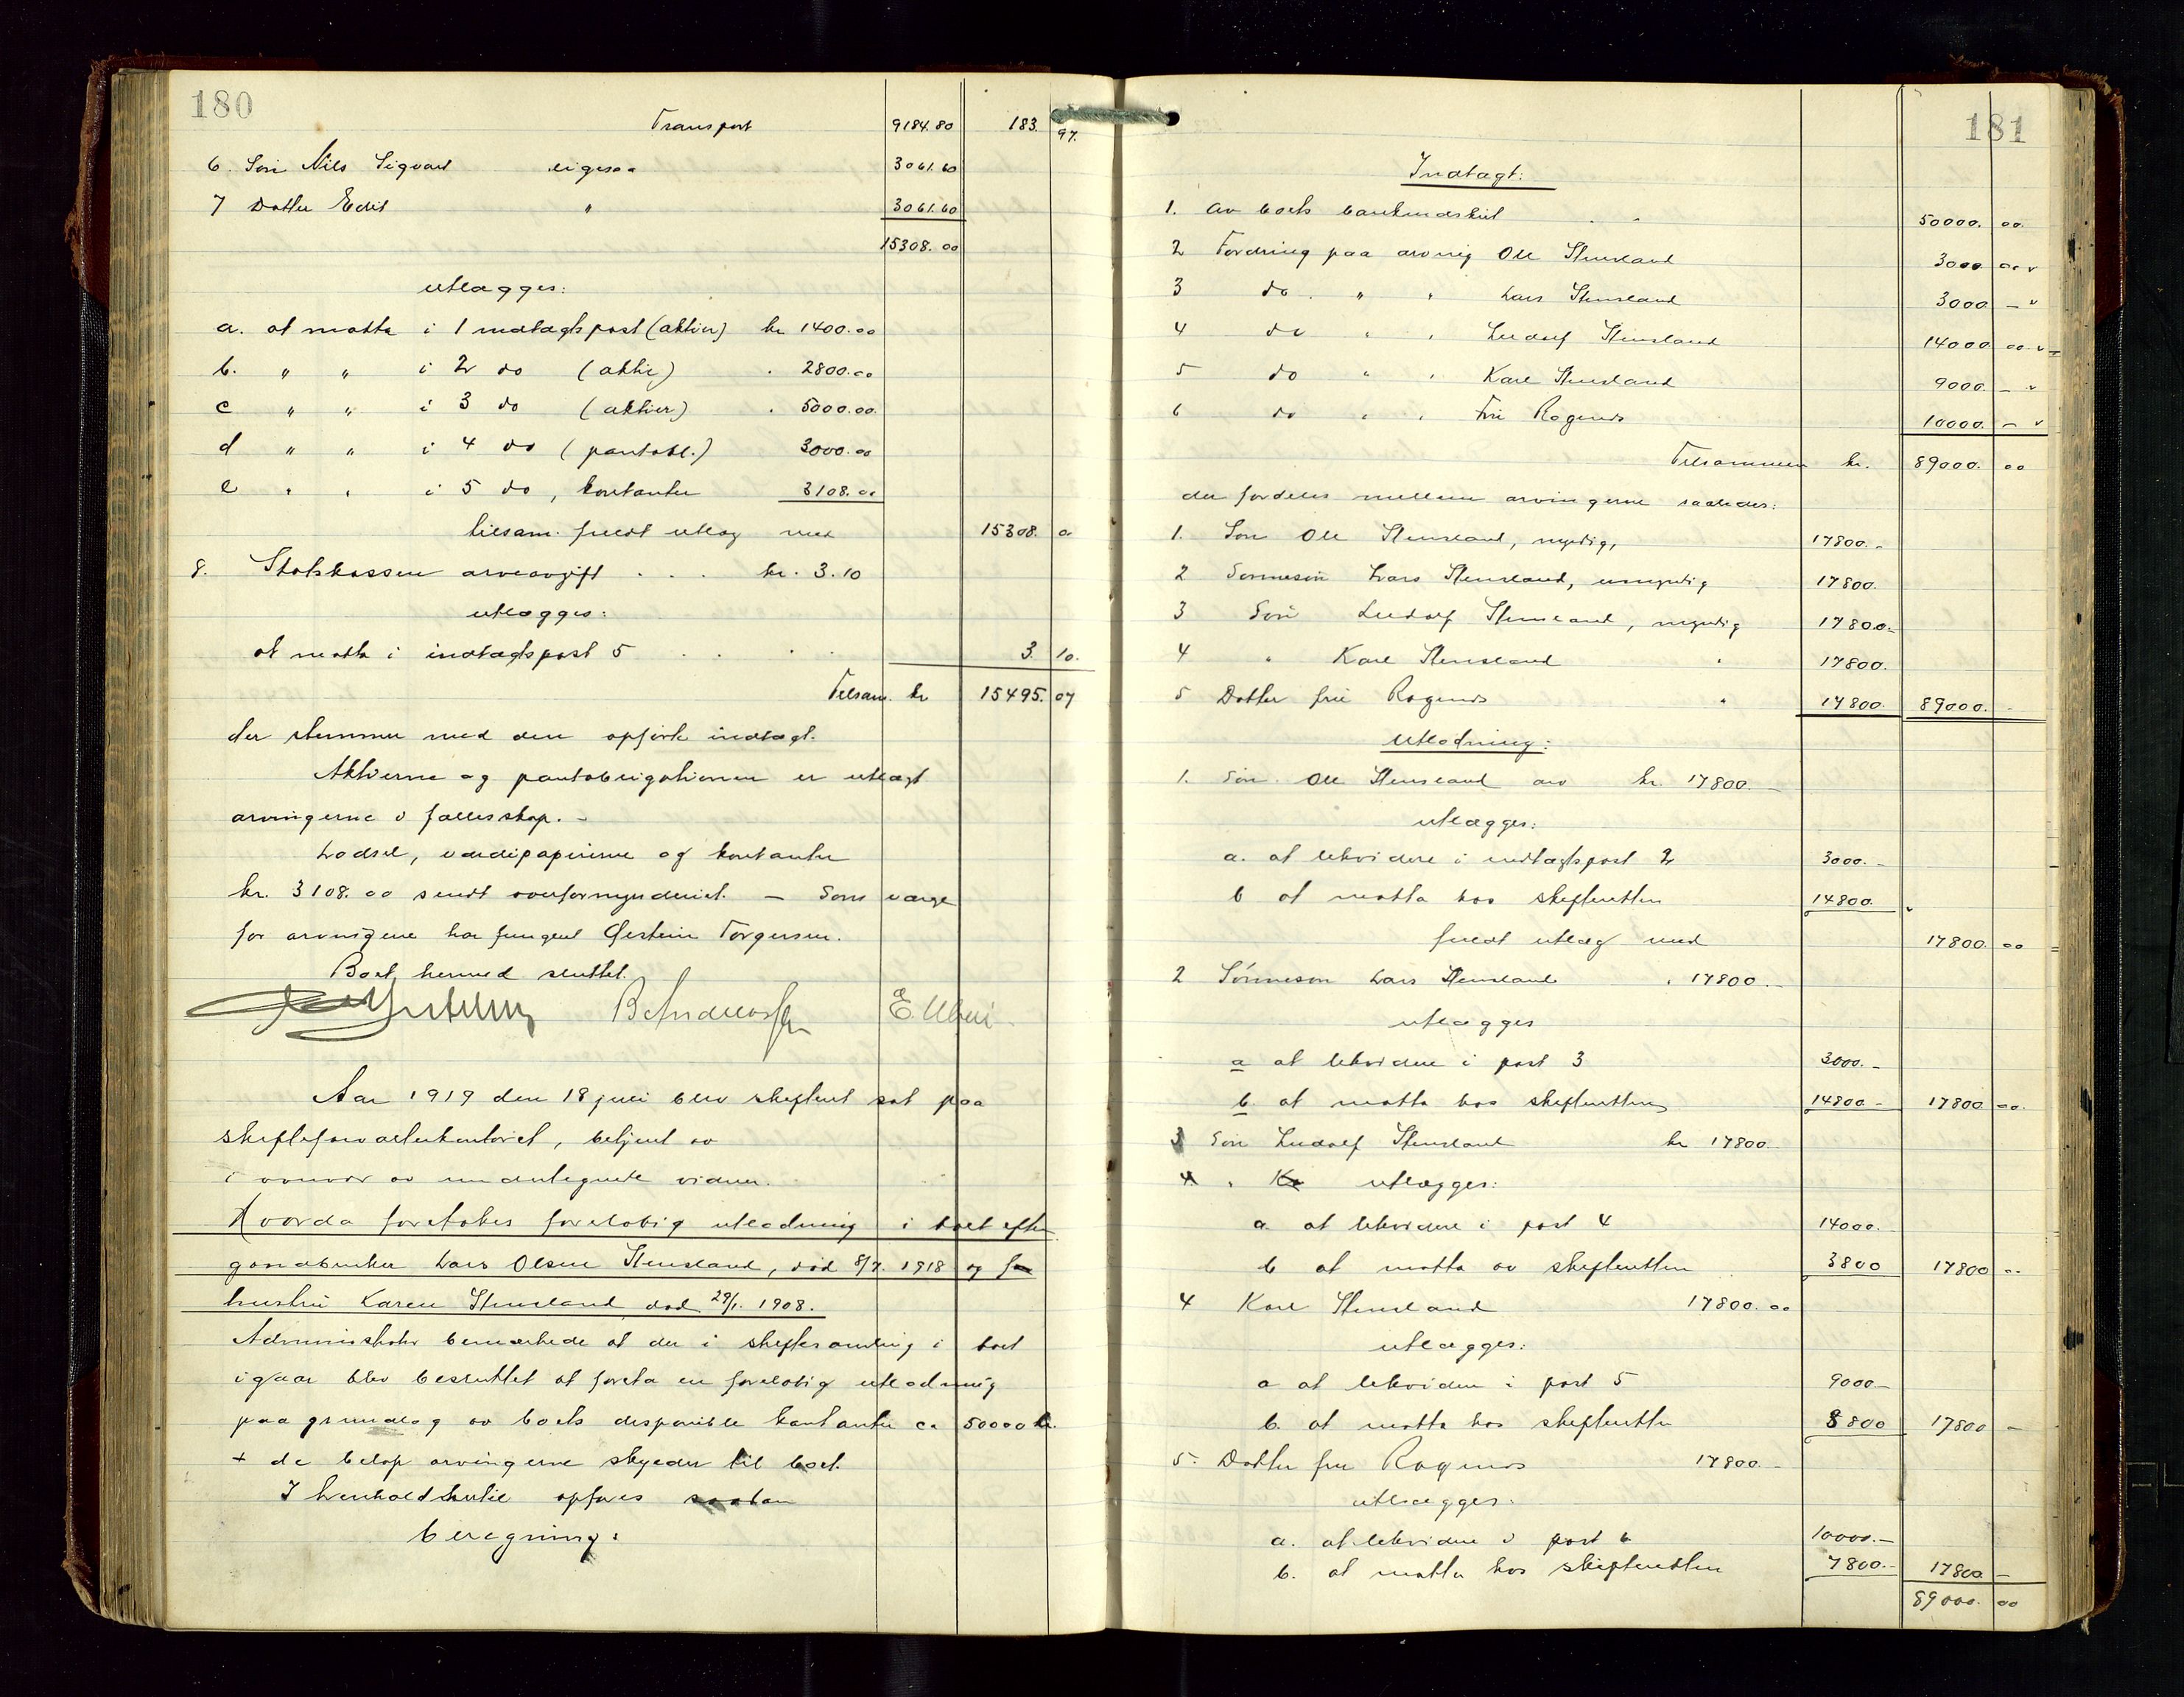 180
Transport 9184.80 183. 97.
6. Søn Nils Sigvart ligesaa 3061.60
7 Datter Edit " 3061.60
15308.00
utlægges:
a. at motta i 1 indtægtspost (aktier) kr 1400.00
b. " " i 2 do (aktie) . 2800.00
c " " i 3 do (aktier) . 5000.00
d " " i 4 do (pantobl.) 3000.00
e " " i 5 do, kontanter 3108.00
tilsam. fuldt utlæg med 15308. 00
8. Statskassen arveavgift . . . kr. 3.10
utlægges:
at motta i indtægtspost 5 . . . . 3. 10.
Tilsam. kr 15495. 07
der stemmer med den opførte indtægt.
Aktierne og pantobligationen er utlagt
arvingerne i fællesskap. -
Lodsed, værdipapirerne og kontanter
kr. 3108.00 sendt overformynderiet. - Som værge
for arvingene har fungert Torgersen.
Boet hermed sluttet.
Aar 1919 den 18 juli blev skifteret sat paa
skifteforvalterkontoret, betjent av
i overvær av undertegnede vidner.
Hvorda foretokes foreløbig utlodning i boet efter
gaardbruker Lars Olsen Stensland, død 8/7. 1918 og
hustru Karen Stensland død 29/1. 1908.
Administrator bemærkede at der i skiftesamling i boet
igaar blev besluttet at foreta en foreløbig utlodning
paa grundlag av boets disponible kontanter ca 50000 kr.
+ de beløp arvingerne skylder til boet.
I henhold hertil opføres saadan
beregning:
181
Indtægt:
1. Av boets bankindskud . . 50000. 00.
2 Fordring paa arving Ole Stensland 3000 00 v
3 do. " " Lars Stensland 3000. - v
4 do " " Ludolf Stensland 14000. 00 v
5 do " " Karl Stensland 9000. - v
6 do " " Fru Rogenes 10000. - v
Tilsammen kr. 89000. 00
der fordeles mellem arvingerne saaledes:
1. Søn Ole Stensland, myndig, 17800.-
2 Sønnesøn Lars Stensland, umyndig 17800.
3 Søn Ludolf Stensland, myndig 17800.-
4 " Karl Stensland " 17800.
5 Datter fru Rogenes " 17800. 89000. -
Utlodning:
1. Søn Ole Stensland arv kr. 17800.-
utlægges:
a. at likvidere i indtægtspost 2 3000.-
b at motta hos skifteretten 14800.
fuldt utlæg med 17800. 00
2 Sønnesøn Lars Stensland . 17800.-
utlægges
a at likvidere i post 3 3000.-
b. at motta hos skifteretten 14800.- 17800 00.
3 Søn Ludolf Stensland kr 17800.-
4 " Ka utlægges:
a at likvidere i post 4 14000.-
b at motta av skifteretten 3800 17800 ..
4 Karl Stensland 17800.00
utlægges:
a at likvidere i post 5 9000-
b. at motta hos skifteretten 8800 17800 -
5. Datter fru Rogenes 17800.-
utlægges.
a. at likvidere i post 6 10000.-
b. at motta hos skifteretten 7800.- 17800 -
89000. 00